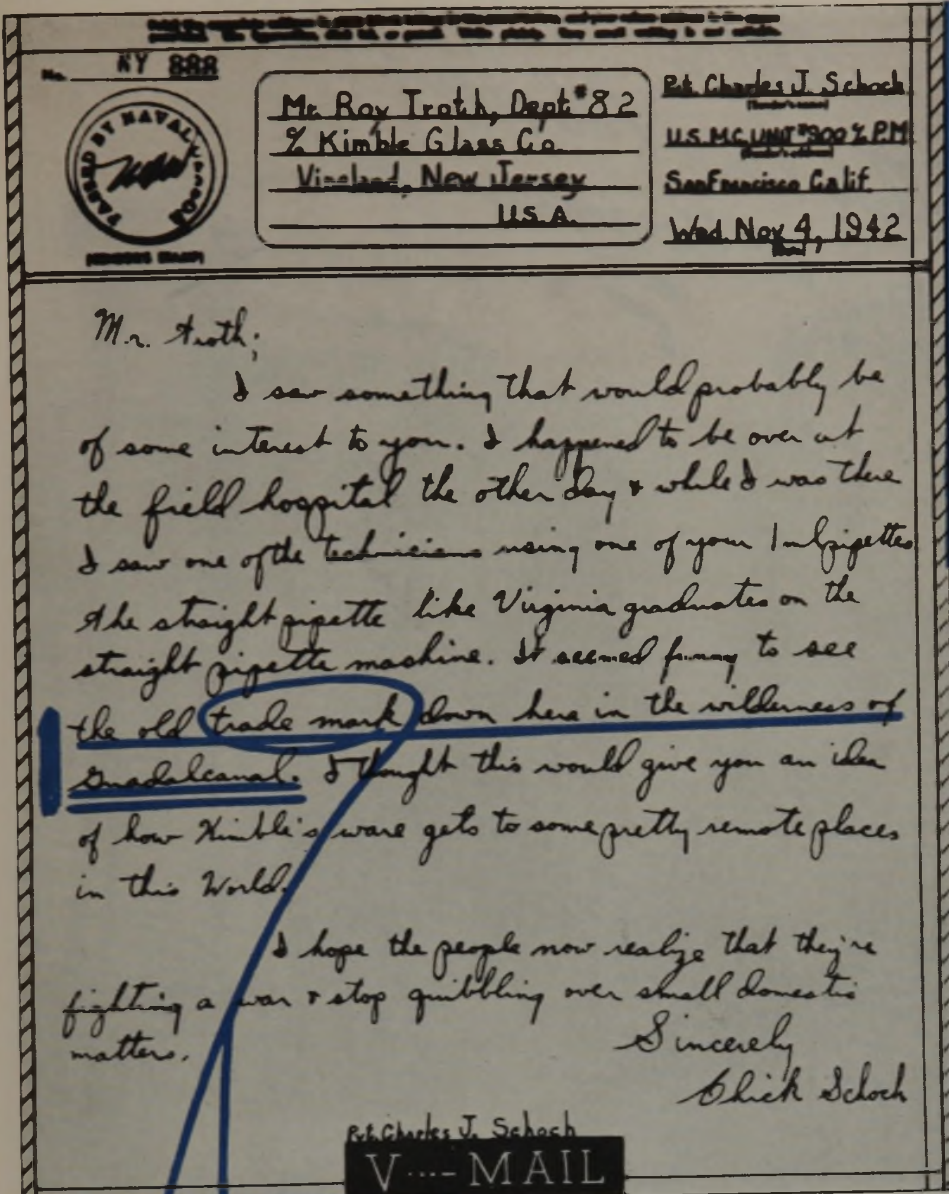 No. NY 888
PASSED BY NAVAL CENSOR
(CENSORS STAMP)
Mr. Roy Troth, Dept #82
℅ Kimble Glass Co
Vineland, New Jersey
U.S.A.
Pvt. Charles J. Schoch
(Sender's name)
U.S.M.C. UNIT #900 ℅ P.M
(Sender's address)
San Francisco Calif.
Wed. Nov 4, 1942
(Date)
Mr. Troth;
I saw something that would probably be
of some interest to you. I happened to be over at
the field hospital the other day & while I was there
I saw one of the technicians using one of your 1 ml pipettes
the straight pipette like Virginia graduates on the
straight pipette machine. It seemed funny to see
the old trade mark down here in the wilderness of
Guadalcanal. I thought this would give you an idea
of how Kimble's ware gets to some pretty remote places
in this World.
I hope the people now realize that they're
fighting a war & stop quibbling over small domestic
matters.
Sincerely
Chick Schoch
Pvt. Charles J. Schoch
V····-MAIL